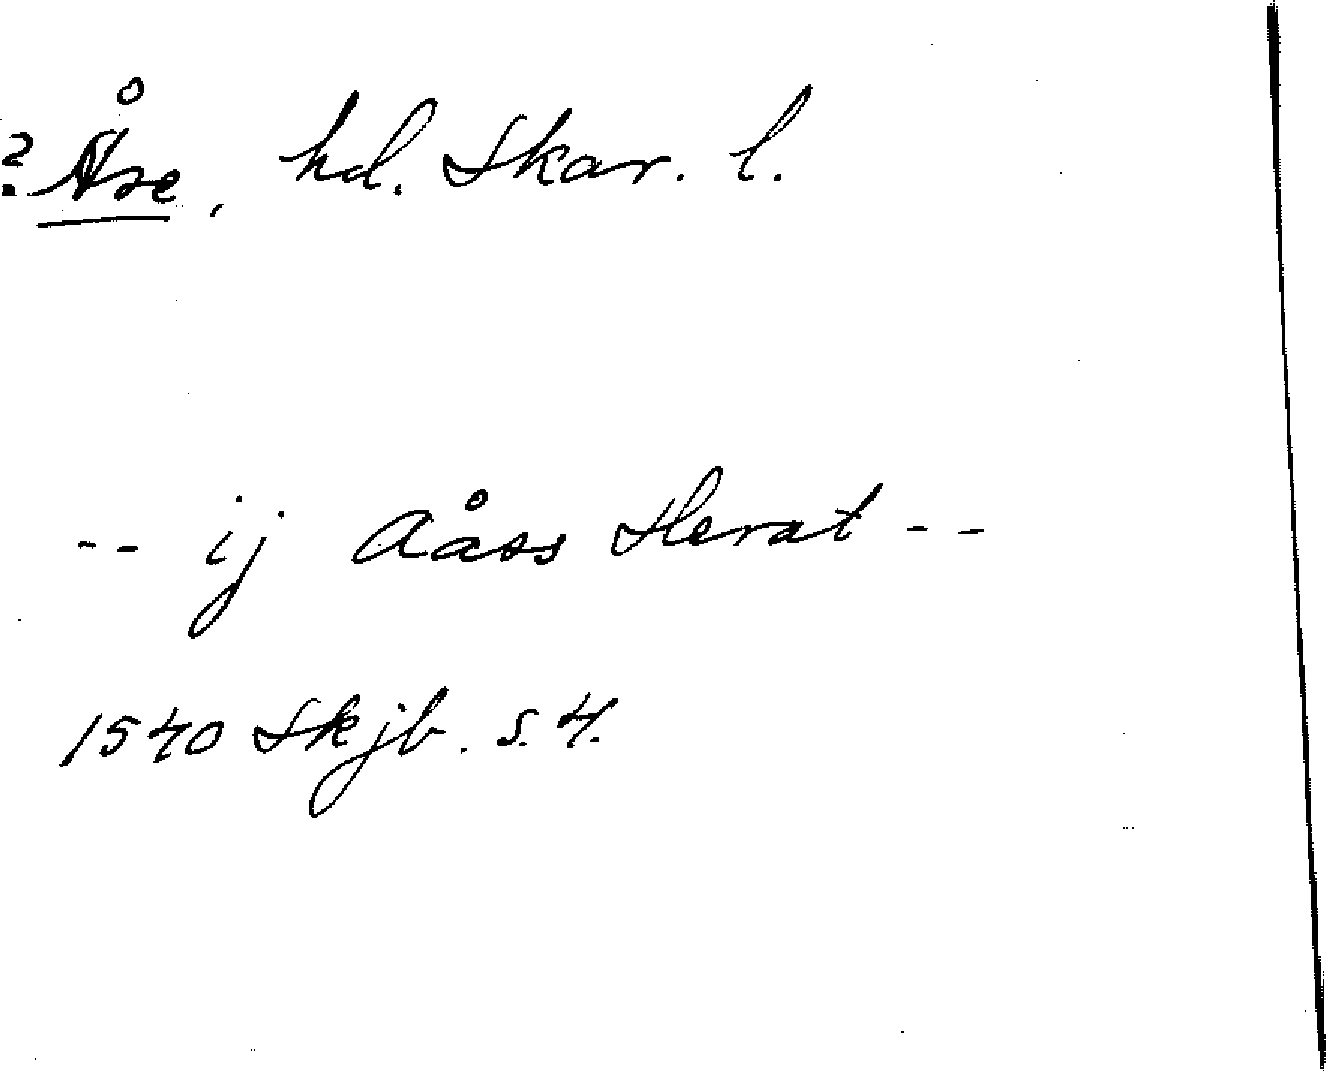 ? Åse, hd. Skar. l.
-- ij Aåss Herat --
1540 Skjb. s. 4.